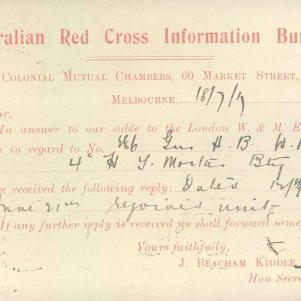 ralian Red Cross Information Bu
Colonial Mutual Chambers, 60 Market Street,
Melbourne, 18/7/19
ur,
In answer to our cable to the London W. & M. E
n in regard to No. Gnr H. B. W.
4th H T. Mortar Bty
e received the following reply: Dated
rejoined unit
If any further reply is received we shall forward some
Yours faithfully,
J. Beacham Kiddle
Hon Secre